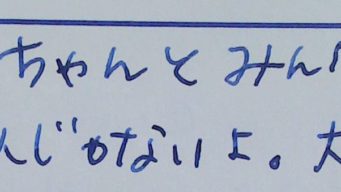 ちゃんとみん
んじゃないよ。大